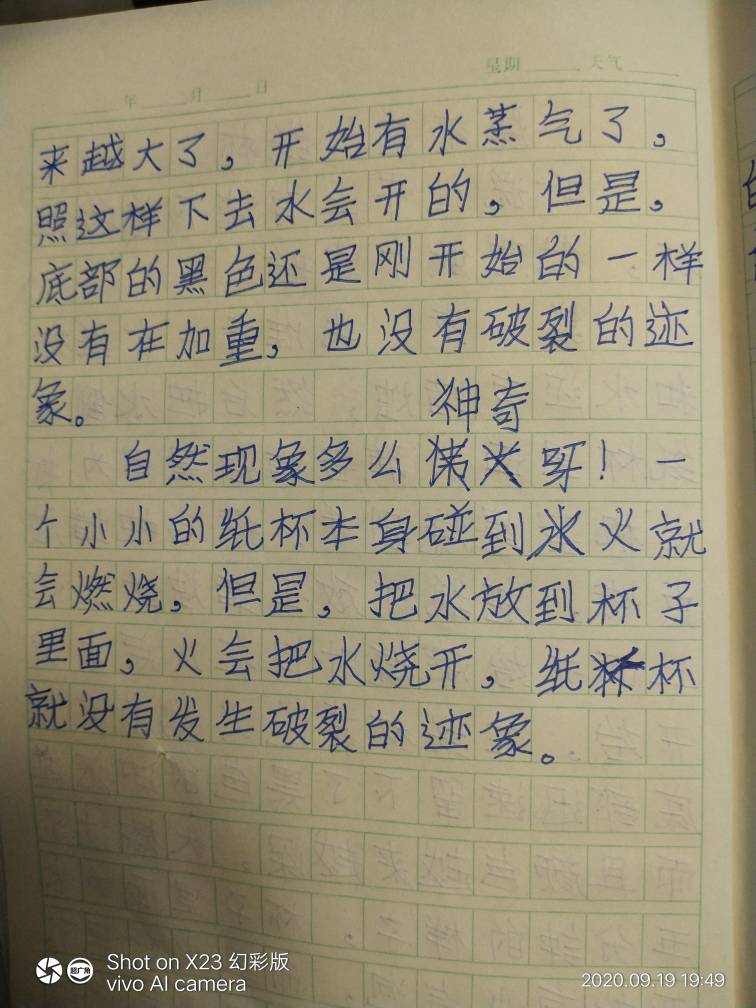 星期 天气
年 月 日
来越大了，开始有水蒸气了，
照这样下去水会开的，但是，
底部的黑色还是刚开始的一样
没有在加重，也没有破裂的迹
象。
神奇
自然现象多么伟大呀！一
个小小的纸杯本身碰到水火就
会燃烧，但是，把水放到杯子
里面，火会把水烧开，纸杯杯
就没有发生破裂的迹象。
Shot on X23 幻彩版
vivo AI camera
超广角
2020.09.19 19:49